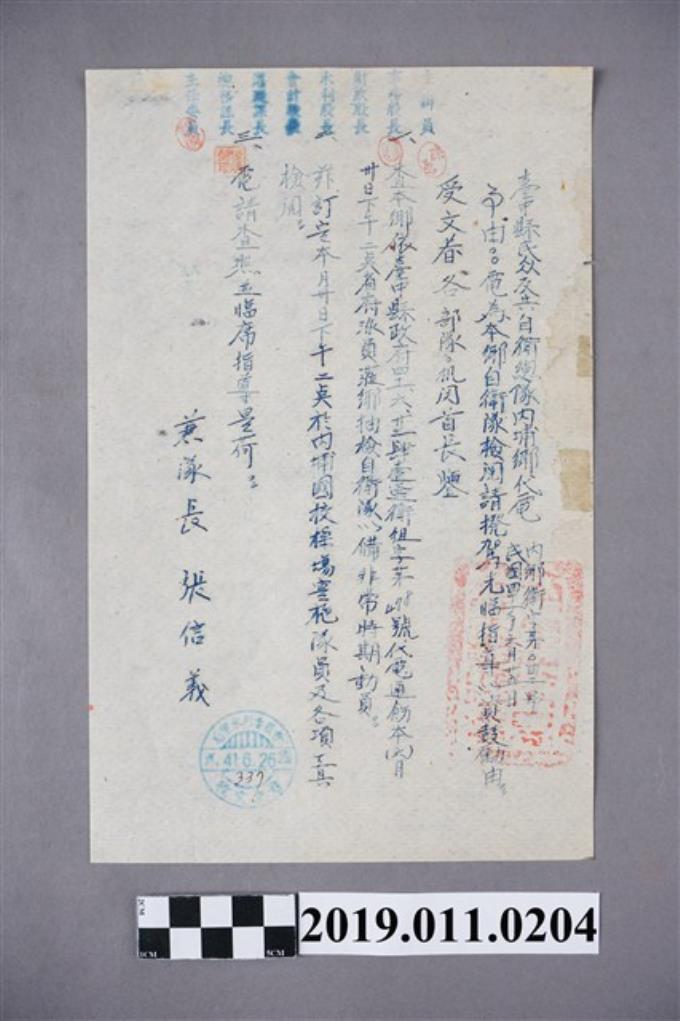 臺中縣民眾反共自衛總隊內埔鄉代電
內鄉衛字第0四二號
民國四一年六月廿五日
事由。電為本鄉自衛隊檢閱請撥駕光臨指導以資鼓勵由。
受文者各部隊、机関首長鑒
一、查本鄉依臺中縣政府四一、六、
衛組字第498號代電通飭本(六)月
卅日下午二点省府派員蒞鄉抽檢自衛隊以備非常時期動員。
二、茲訂定本月卅日下午二点於內埔國校操場實施隊員及各項工具
檢閱。
三、電請查照並臨席指導是荷。
兼隊長 張信義
財政股長
水利股長
會計
41.6.26
337
2019.011.0204
1CM
5CM